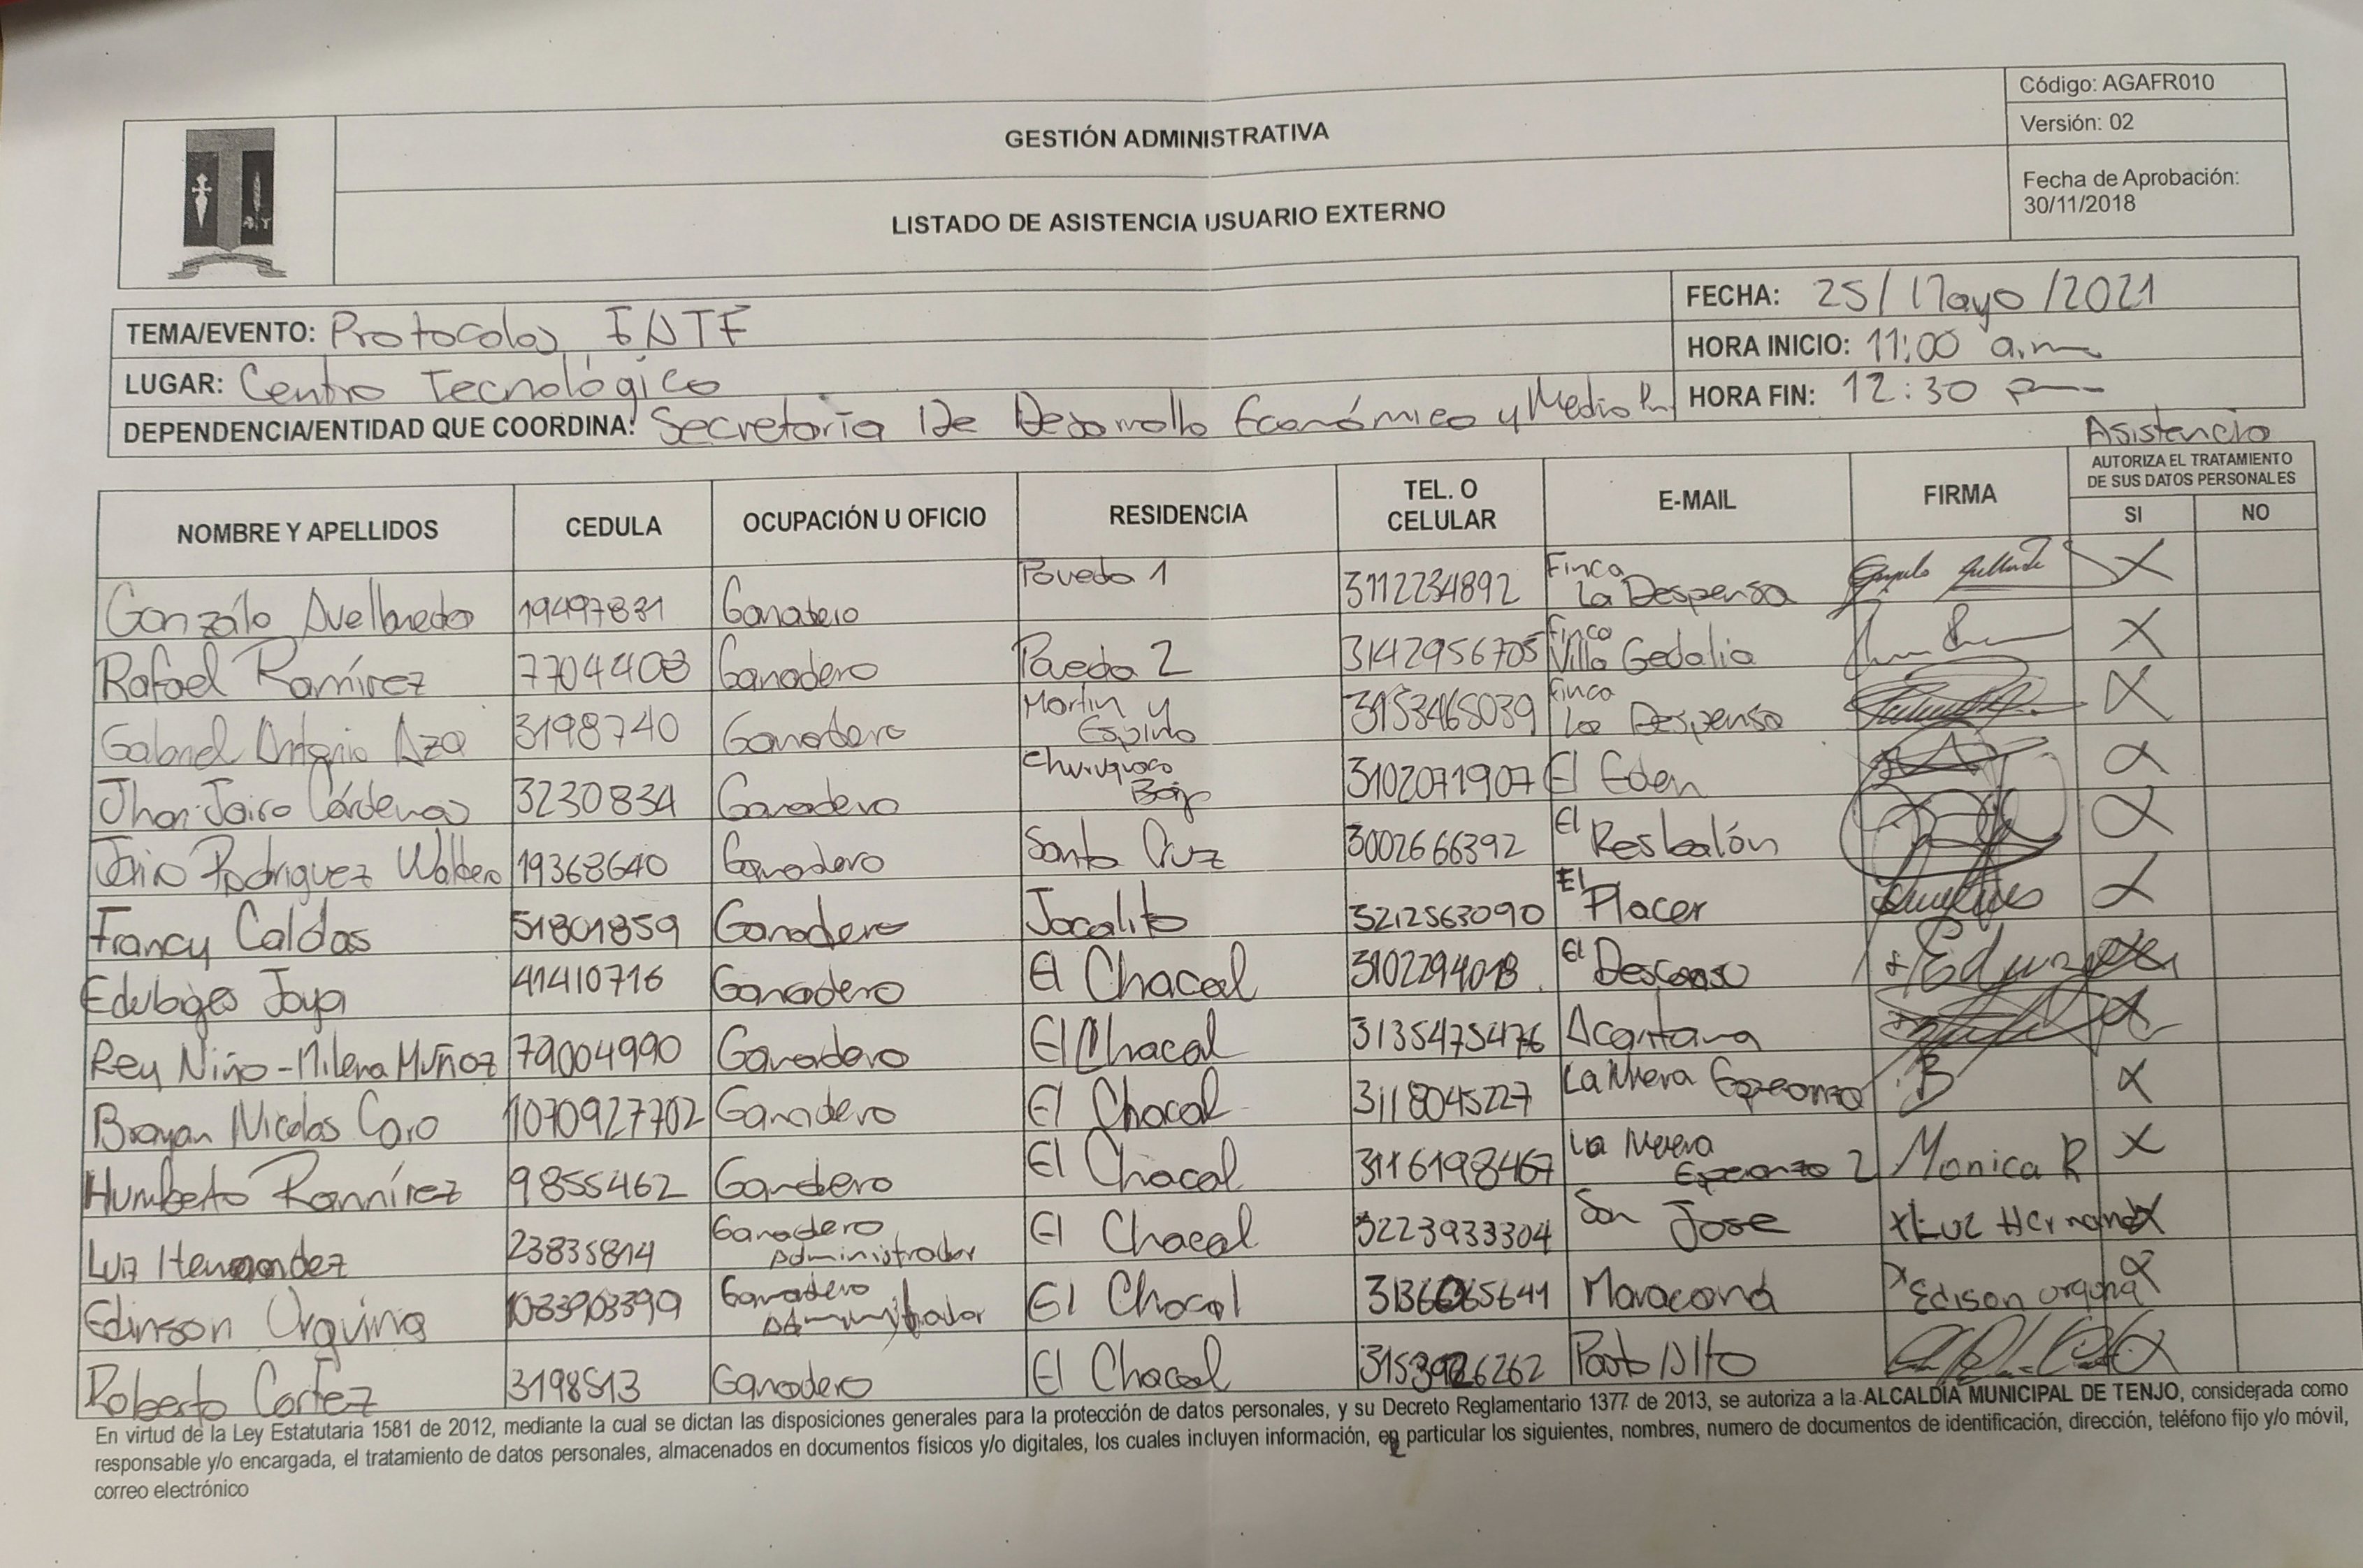 Código: AGAFR010
GESTIÓN ADMINISTRATIVA
Versión: 02
LISTADO DE ASISTENCIA USUARIO EXTERNO
Fecha de Aprobación:
30/11/2018
TEMA/EVENTO: Protocolos
FECHA: 25/Mayo/2021
LUGAR: Centro Tecnológico
HORA INICIO: 11:00 a.m
DEPENDENCIA/ENTIDAD QUE COORDINA: Secretaría De Desarrollo Económico y Medio
HORA FIN: 12:30 pm
Asistencia
NOMBRE Y APELLIDOS CEDULA OCUPACIÓN U OFICIO RESIDENCIA TEL. O CELULAR E-MAIL FIRMA AUTORIZA EL TRATAMIENTO DE SUS DATOS PERSONALES
SI NO
Gonzálo Avellaneda 19497831 Ganadero Poveda 1 3112234892 Finca La Despensa X
Rafael Ramírez 7704408 Ganadero 2 3142956705 Finca Villa Gedalia X
Gabriel Antonio Aza 3198740 Ganadero Martin y Espino 3153465039 Finca La Despensa X
Jhon Jairo Cárdenas 3230834 Ganadero Churuguaco Bajo 3102071907 El Eden X
Rodriguez 19368640 Ganadero Santa Cruz 3002666392 El Resbalón X
Francy Caldas 51801859 Ganadero Jacalito 3212563090 El Placer X
Edubiges Joya 41410716 Ganadero El Chacal El Descanso X
Rey Niño - Milena Muñoz 79004990 Ganadero El Chacal 3135475476 X
Brayan Nicolas Caro 1070927702 Ganadero El Chacal 3118045227 La Nueva Esperanza B X
Humberto Ramírez 9855462 Ganadero El Chacal 3116198467 La Nueva Esperanza 2 Monica R X
Luz Hernandez 23835814 Ganadero Administrador El Chacal 3223933304 San Jose X Luz Hernandez X
Edinson Urquina 1083903399 Ganadero Administrador El Chacal 3136065641 Maracaná X Edison Urquina X
Roberto Cortez 3198513 Ganadero El Chacal Pasto Alto X
En virtud de la Ley Estatutaria 1581 de 2012, mediante la cual se dictan las disposiciones generales para la protección de datos personales, y su Decreto Reglamentario 1377 de 2013, se autoriza a la ALCALDÍA MUNICIPAL DE TENJO, considerada como
responsable y/o encargada, el tratamiento de datos personales, almacenados en documentos físicos y/o digitales, los cuales incluyen información, en particular los siguientes, nombres, numero de documentos de identificación, dirección, teléfono fijo y/o móvil,
correo electrónico